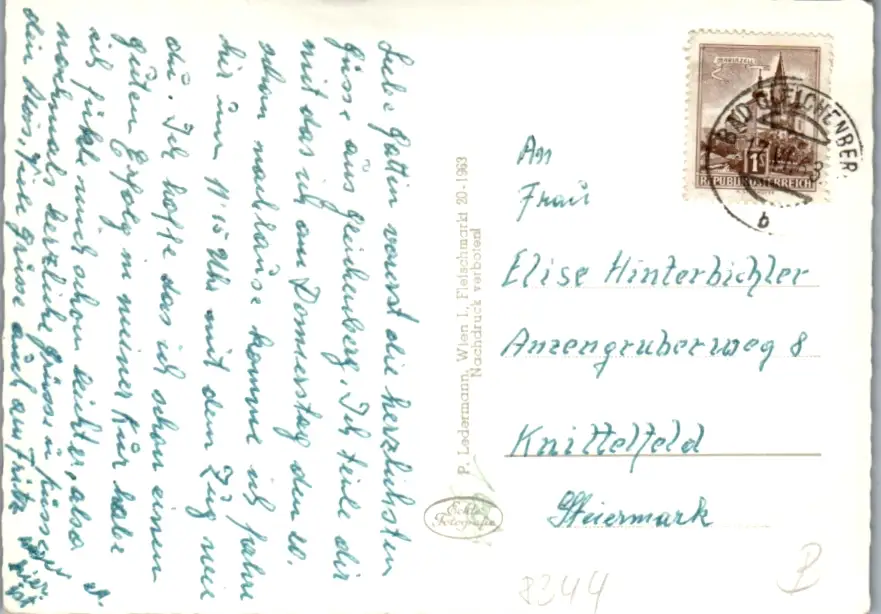 Liebe Gattin vorerst die herzlichsten
Grüsse aus Gleichenberg. Ich teile dir
mit das ich am Donnerstag den 20.
schon nachhause komme ich fahre
hir um 11h 15 Uhr mit dem Zug wie
du. Ich hoffe das ich schon einen
guten Erfolg in meiner Kur habe
ich fühle mich schon leichter, also
nochmals herzliche Grüsse u küsse
dein Alois, Viele Grüsse auch am Fritz
P. Ledermann, Wien I, Fleischmarkt 20 - 1963
Nachdruck verboten!
Echte
Fotografie
MARIAZELL
1S
REPUBLIK ÖSTERREICH
BAD GLEICHENBER
b
An
Frau
Elise Hinterbichler
Anzengruberweg 8
Knittelfeld
Steiermark
8344